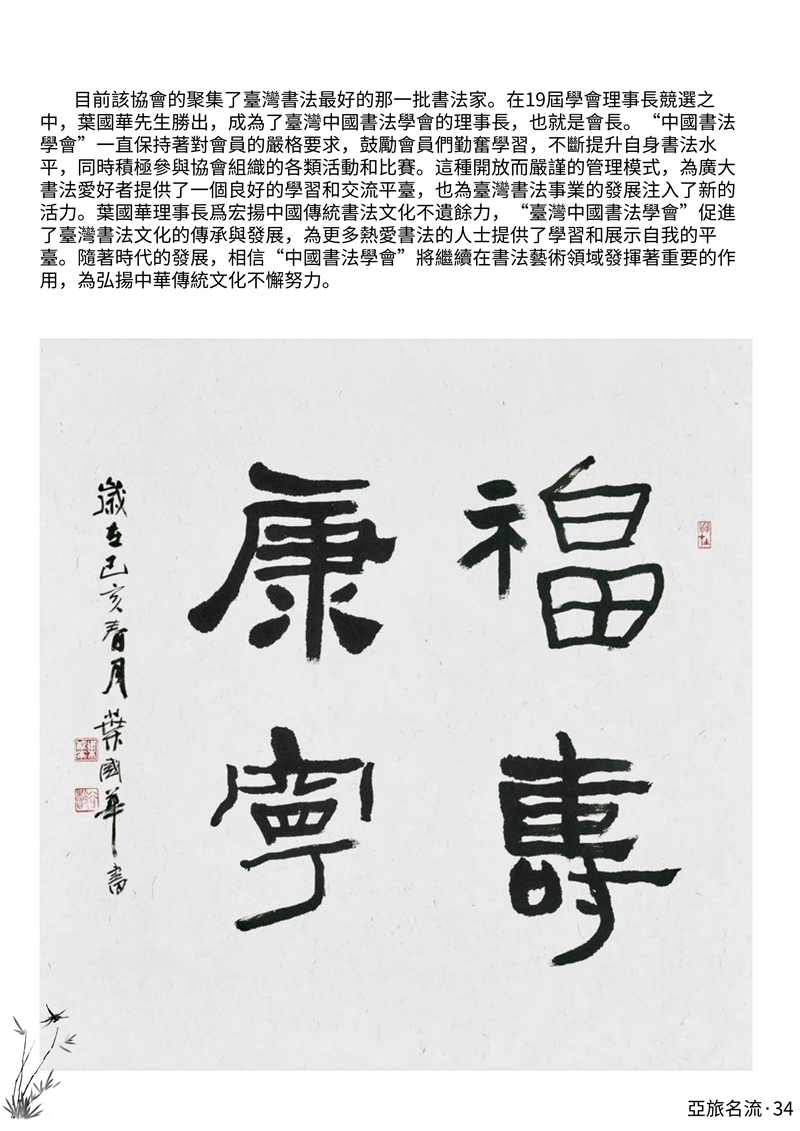 目前該協會的聚集了臺灣書法最好的那一批書法家。在19屆學會理事長競選之
中，葉國華先生勝出，成為了臺灣中國書法學會的理事長，也就是會長。“中國書法
學會”一直保持著對會員的嚴格要求，鼓勵會員們勤奮學習，不斷提升自身書法水
平，同時積極參與協會組織的各類活動和比賽。這種開放而嚴謹的管理模式，為廣大
書法愛好者提供了一個良好的學習和交流平臺，也為臺灣書法事業的發展注入了新的
活力。葉國華理事長爲宏揚中國傳統書法文化不遺餘力，“臺灣中國書法學會”促進
了臺灣書法文化的傳承與發展，為更多熱愛書法的人士提供了學習和展示自我的平
臺。隨著時代的發展，相信“中國書法學會”將繼續在書法藝術領域發揮著重要的作
用，為弘揚中華傳統文化不懈努力。
福壽
康寧
歲在己亥春月葉國華書
亞旅名流·34